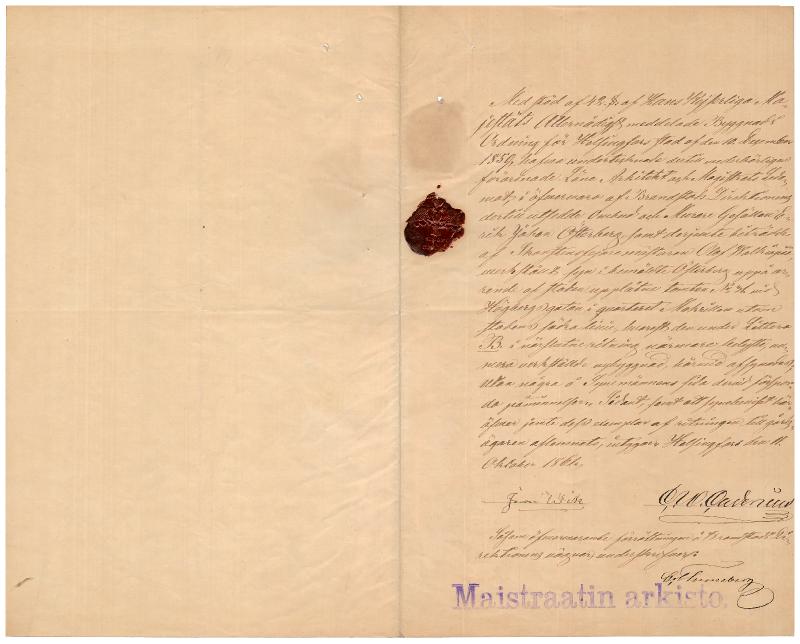 Med stöd af 42 § af Hans Kejserliga Ma-
jestäts Allernådigst meddelade Byggnads
Ordning för Helsingfors stad af den 10 December
1856, hafva undertecknade dertill vederbörligen
förordnade Läns Arkitekt och Magistrats Leda-
mot, i öfvervaro af Brandstods Direktionens
dertill utsedde Ombud och Murare Gesällen E-
rik Johan Österberg, samt derjemte biträdde
af Brandsynemästaren Olof
verkstält syn i bemälte Österberg uppå ar-
rende af staden upplåtne tomten No 4 vid
Högbergsgatan i quarteret utom
stadens södra linie, hvarest den under Littera
B. i närslutne ritning närmare belyste, nu-
mera verkstälde nybyggnad, härvid afsynades,
utan några å Synemännens sida dervid förspor-
da påminnelser. Sådant, samt att synebeviset här-
öfver jemte dess exemplar af ritningen till gårds-
ägaren aflemnats, intygar Helsingfors den 11
Oktober 1861.
Såsom öfvervarande förrättningen å Brandstods Di-
rektionens vägnar, underskrifver
Maistraatin arkisto.